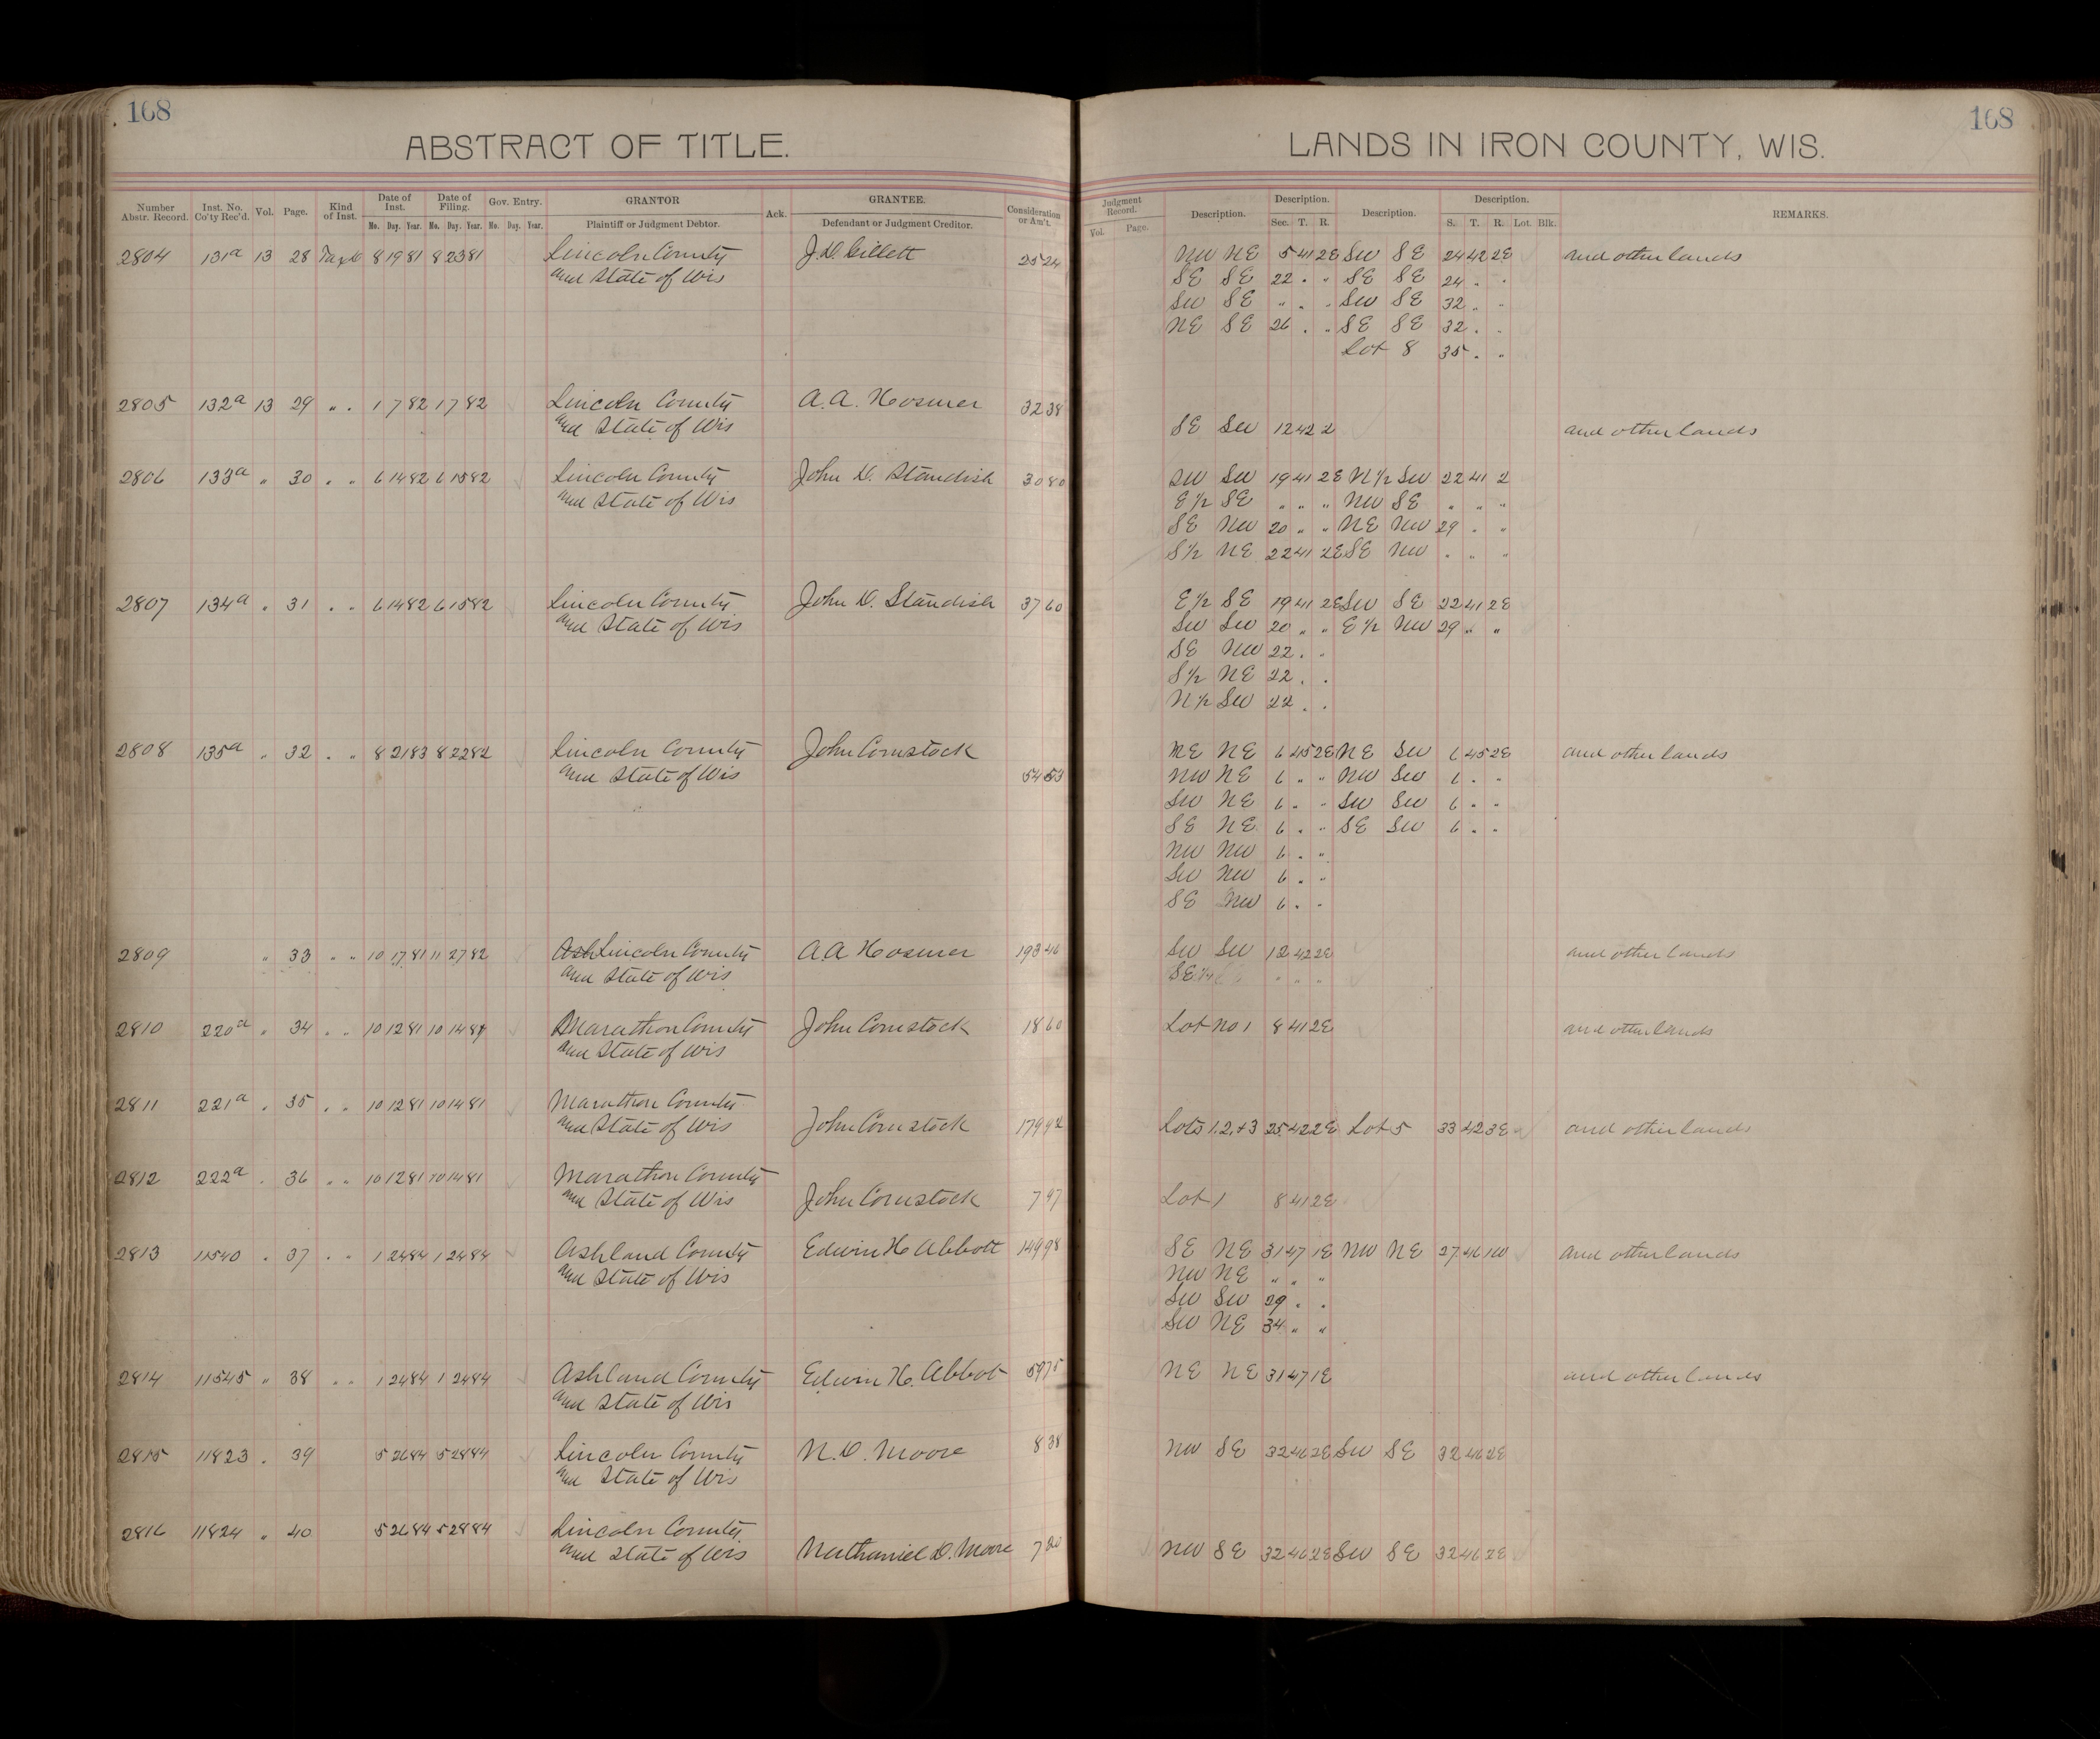 168
168
ABSTRACT OF TITLE.
LANDS IN IRON COUNTY, WIS.
Number Abstr. Record. Inst. No. Co'ty Rec'd. Vol. Page. Kind of Inst. Date of Inst. Mo. Day. Year. Date of Filing. Mo. Day. Year. Gov. Entry. Mo. Day. Year. GRANTOR Plaintiff or Judgment Debtor. Ack. GRANTEE. Defendant or Judgment Creditor. Consideration or Am't. Judgment Record. Vol. Page. Description. Description. Sec. T. R. Description. Description. S. T. R. Lot. Blk. REMARKS.
2804 131a 13 28 8 19 81 8 23 81 Lincoln County J.D. Gillett 25 24 NW NE 5 41 2E SW SE 24 42 2E and other lands
and State of Wis SE SE 22 . " SE SE 24 " .
SW SE " . . SW SE 32 . "
NE SE 26 . " SE SE 32 . .
Lot 8 35 . "
2805 132a 13 29 " . 1 7 82 1 7 82 Lincoln County A.A. Hosmer 32 38
and State of Wis SE SW 12 42 2 and other lands
2806 133a " 30 . " 6 14 82 6 15 82 Lincoln County John D. Standish 30 80 SW SW 19 41 2E N 1/2 SW 22 41 2
and State of Wis E 1/2 SE " " " NW SE " " "
SE NW 20 " " NE NW 29 . "
S 1/2 NE 22 41 2E SE NW . " "
2807 134a " 31 . " 6 14 82 6 15 82 Lincoln County John D. Standish 37 60 E 1/2 SE 19 41 2E SW SE 22 41 2E
and State of Wis SW SW 20 " " E 1/2 NW 29 " "
SE NW 22 . .
S 1/2 NE 22 . .
N 1/2 SW 22 . .
2808 135a " 32 . " 8 21 83 8 22 82 Lincoln County John Comstock NE NE 6 45 2E NE SW 6 45 2E and other lands
and State of Wis 54 53 NW NE 6 " " NW SW 6 . "
SW NE 6 . " SW SW 6 . "
SE NE 6 . " SE SW 6 . .
NW NW 6 . "
SW NW 6 " "
SE NW 6 . "
2809 " 33 " " 10 17 81 11 27 82 Ash Lincoln County A.A Hosmer 193 46 SW SW 12 42 2E and other lands
and State of Wis SE 1/4 " " "
2810 220a " 34 " . 10 12 81 10 14 81 Marathon County John Comstock 18 60 Lot no 1 8 41 2E and other lands
and State of Wis
2811 221a . 35 . " 10 12 81 10 14 81 Marathon County
and State of Wis John Comstock 179 92 Lots 1.2.+3 25 42 2E Lot 5 33 42 3E and other lands
2812 222a . 36 . " 10 12 81 10 14 81 Marathon County
and State of Wis John Comstock 7 97 Lot 1 8 41 2E
2813 11540 . 37 . " 1 24 84 1 24 84 Ashland County Edwin H Abbott 149 98 SE NE 31 47 1E NW NE 27 46 1W and other lands
and State of Wis NW NE " " "
SW SW 29 . .
SW NE 34 " "
2814 11545 " 38 " . 1 24 84 1 24 84 Ashland County Edwin H. Abbot 59 75 NE NE 31 47 1E and other lands
and State of Wis
2815 11823 . 39 5 26 84 5 28 84 Lincoln County N.D. Moore 8 38 NW SE 32 46 2E SW SE 32 46 2E
and State of Wis
2816 11824 " 40 5 26 84 5 28 84 Lincoln County
and State of Wis Nathaniel D. Moore 7 20 NW SE 32 46 2E SW SE 32 46 2E